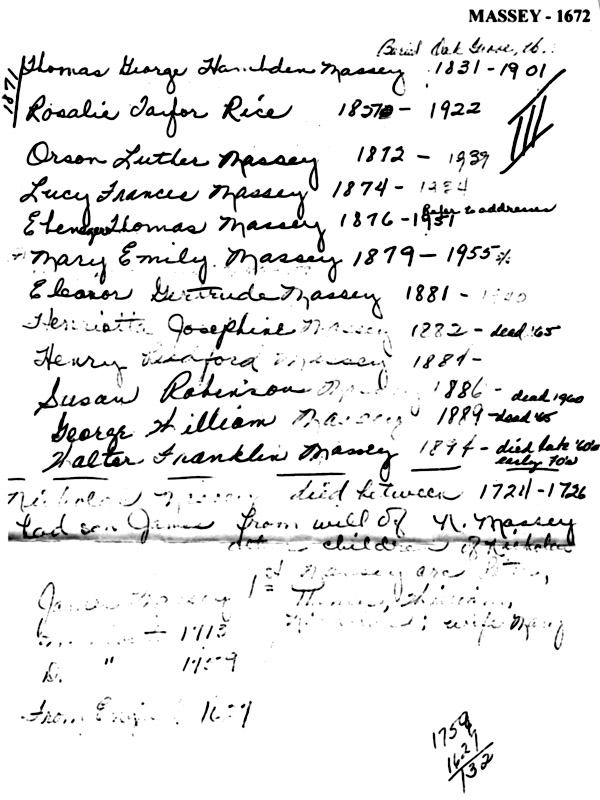 MASSEY - 1672
Buried Oak Grove,
1871
Thomas George Hambden Massey 1831-1901
Rosalie Taylor Rice 1850 - 1922
III
Orson Luther Massey 1872 - 1939
Lucy Frances Massey 1874 - 1934
Refer to addresses
Ebenezer Thomas Massey 1876-1951
Mary Emily Massey 1879-1955
Eleanor Gertrude Massey 1881 -
Henrietta Josephine Massey 1882 - dead '65
Henry Massey 1884 -
Susan Robinson 1886 - dead 1960
George William Massey 1889 - dead '65
Walter Franklin Massey 1894 - died late '60s
early 70s
Nicholas Massey died between 1724-1726
had son James from will of N. Massey
other children of Nicholas
James Massey 1st Massey are
Thomas, William,
1713 ; wife Mary
D. "
From
1759
1627
132